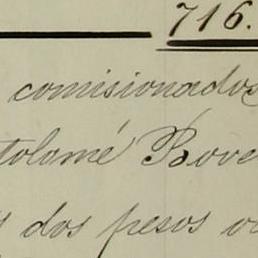 716.
comisionados
tolomé Bove
dos pesos